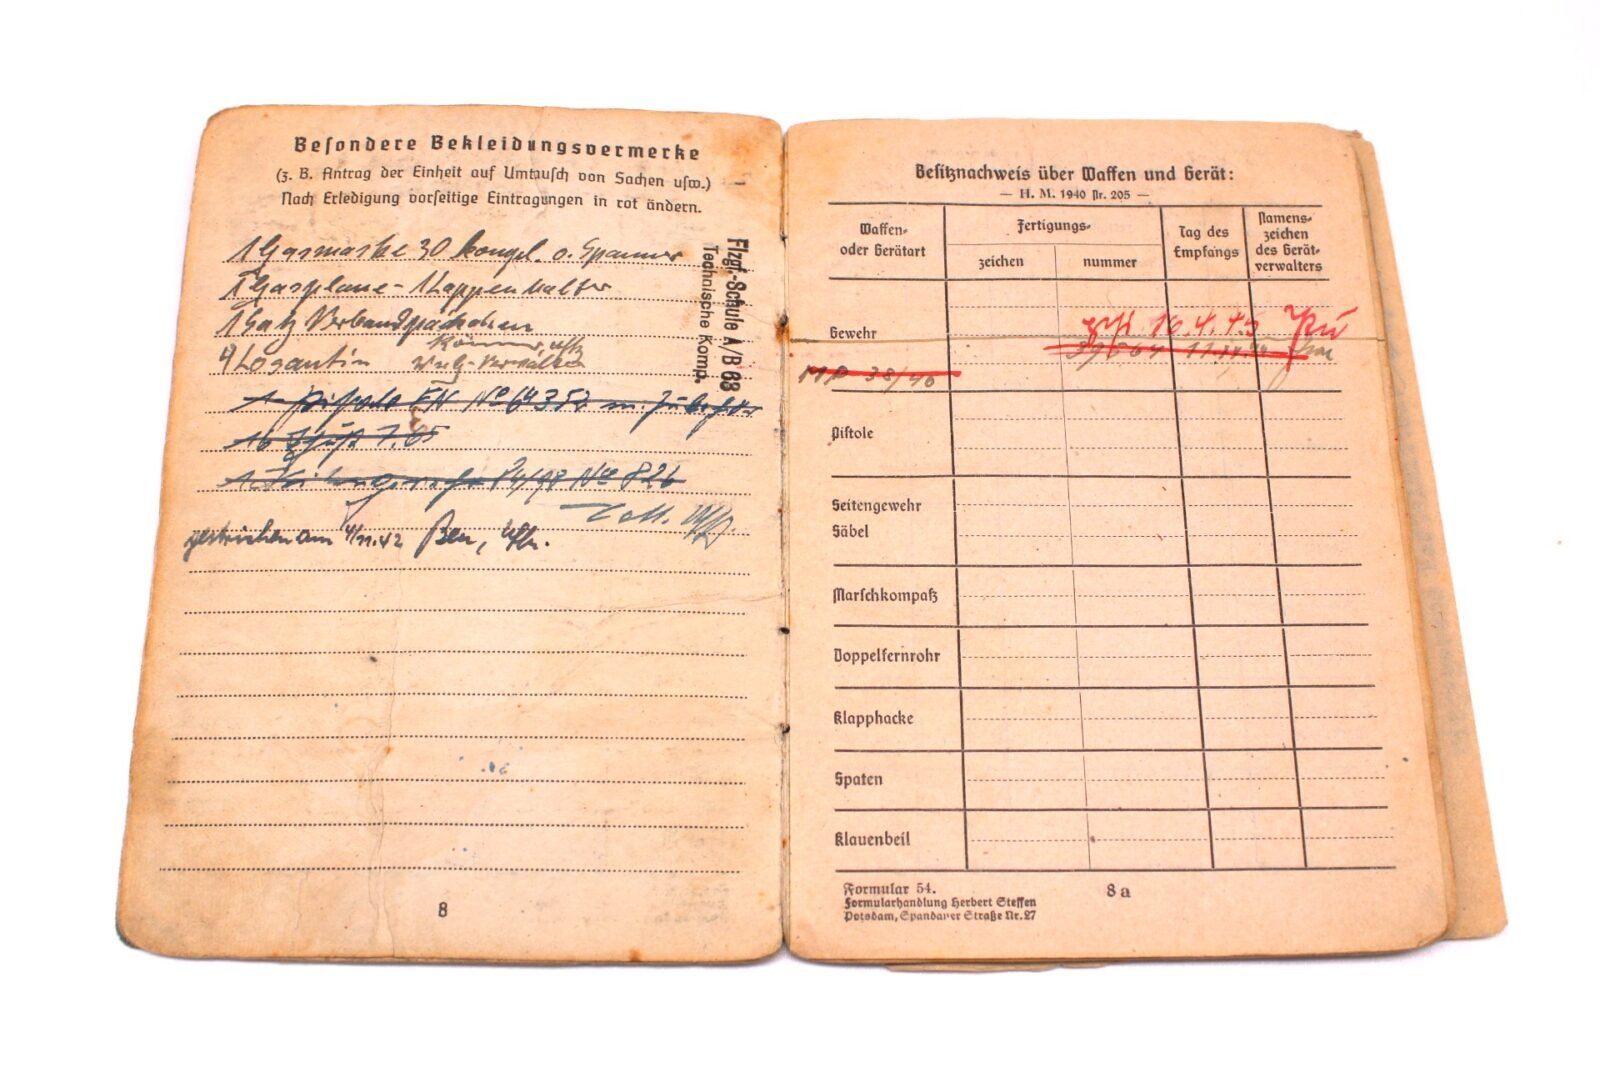 Besondere Bekleidungsvermerke
(z. B. Antrag der Einheit auf Umtausch von Sachen usw.)
Nach Erledigung vorseitige Eintragungen in rot ändern.
1 Gasmaske 30 kompl. o. Spanner
1 Gasplane - 1 Klappenhalter
1 Satz Verbandpäckchen
4 Losantin
1 Pistole FN No 64352 m. Zubehör
16 Schuß 7.65
84/98 No 826
gestrichen am 4/11.42
Flzgf.-Schule A/B 63
Technische Komp.
8
Besitznachweis über Waffen und Gerät:
— H. M. 1940 Nr. 205 —
Waffen- oder Gerätart
Fertigungs-
zeichen
nummer
Tag des Empfangs
Namens- zeichen des Gerät- verwalters
Gewehr
16.4.45
MP 38/40
Pistole
Seitengewehr
Säbel
Marschkompaß
Doppelfernrohr
Klapphacke
Spaten
Klauenbeil
Formular 54.
Formularhandlung Herbert Steffen
Potsdam, Spandauer Straße Nr. 27
8 a